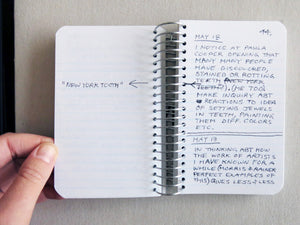 44.
MAY 18
I NOTICE AT PAULA
COOPER OPENING THAT
MANY MANY PEOPLE
HAVE DISCOLORED,
STAINED OR ROTTING
TEETH (NEW YORK
"NEW YORK TOOTH"
TEETH?). (ME TOO)
MAKE INQUIRY ABT
REACTIONS TO IDEA
OF SETTING JEWELS
IN TEETH, PAINTING
THEM DIFF. COLORS
ETC.
MAY 19
IN THINKING ABT HOW
THE WORK OF ARTISTS
I HAVE KNOWN FOR A
WHILE (MORRIS & RAINER
PERFECT EXAMPLES OF
THIS) GIVES LESS & LESS